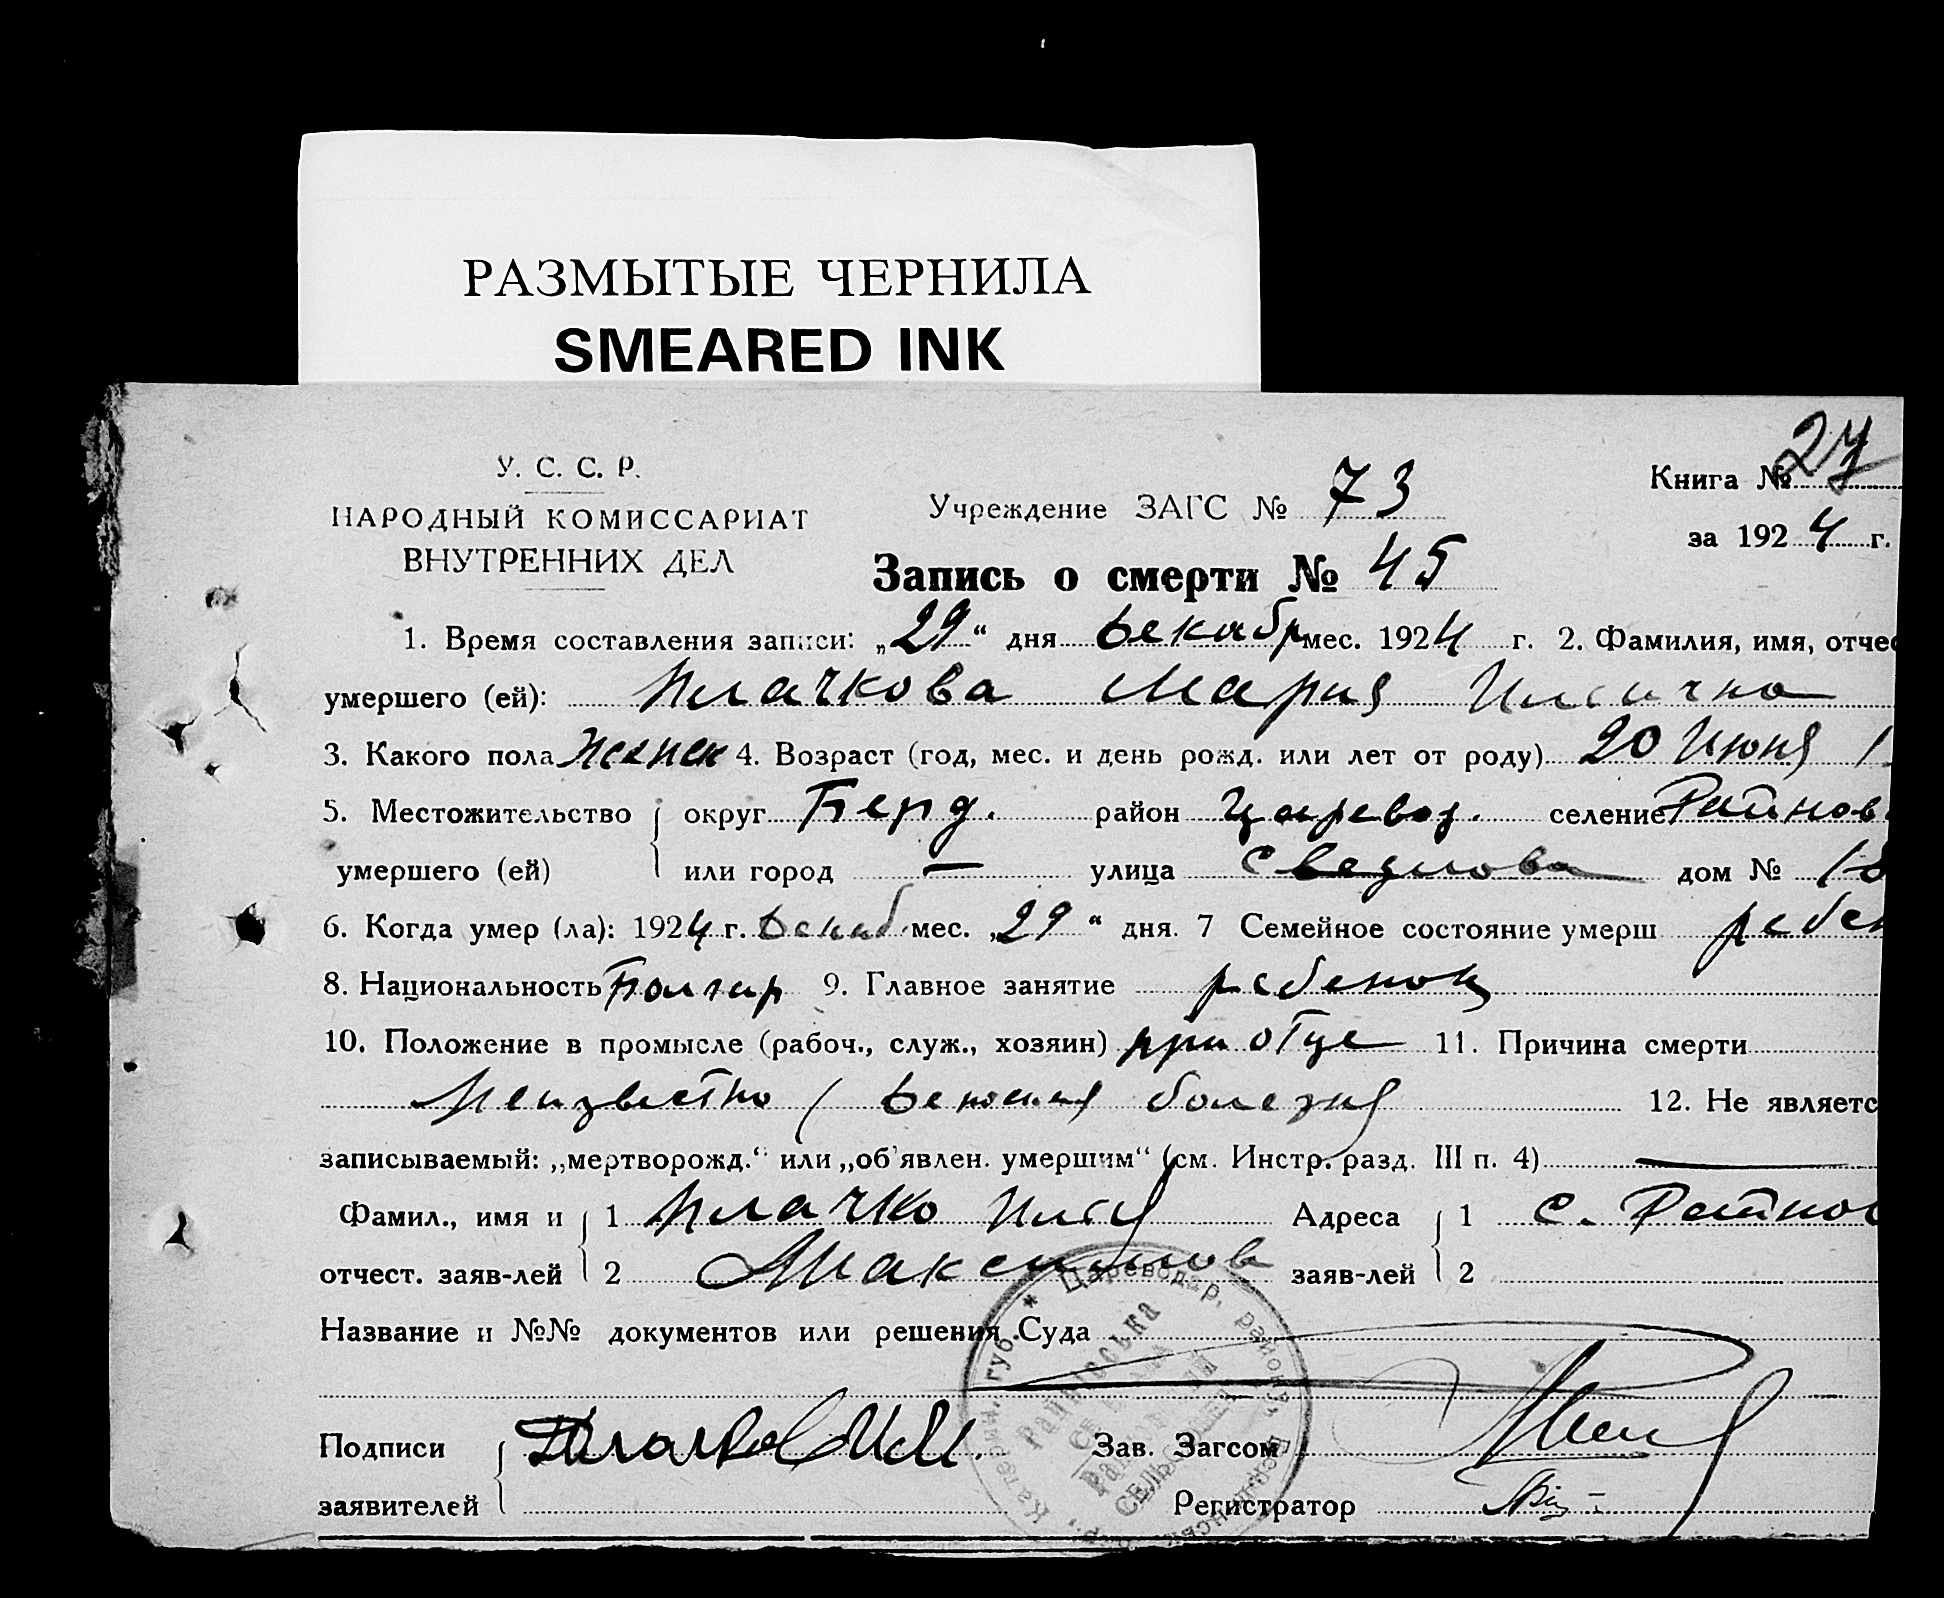 РАЗМЫТЫЕ ЧЕРНИЛА
SMEARED INK
У. С. С. Р.
НАРОДНЫЙ КОМИССАРИАТ
ВНУТРЕННИХ ДЕЛ
Учреждение ЗАГС № 73
Книга № 27
за 1924 г.
Запись о смерти № 45
1. Время составления записи: „29“ дня Декабр мес. 1924 г. 2. Фамилия, имя, отчес
умершего (ей): Плачкова Мария Ильична
3. Какого пола женск 4. Возраст (год, мес. и день рожд. или лет от роду) 20 Июня 1
5. Местожительство округ Берд. район Царевод. селение Райнов
умершего (ей) или город — улица дом № 18
6. Когда умер (ла): 1924 г. Декаб. мес. „29“ дня. 7 Семейное состояние умерш ребен
8. Национальность Болгар 9. Главное занятие ребенок
10. Положение в промысле (рабоч., служ., хозяин) при отце 11. Причина смерти
Неизвестно ( болезня 12. Не являетс
записываемый: „мертворожд.“ или „об'явлен. умершим“ (см. Инстр. разд. III п. 4) —
Фамил., имя и 1 Плачко Илья Адреса 1 с. Райнов
отчест. заяв-лей 2 Максимов заяв-лей 2
Название и №№ документов или решения Суда
Подписи Плачков И М. Зав. Загсом
заявителей Регистратор
* Цареводар. района, Катерин. губ.
Райнівська